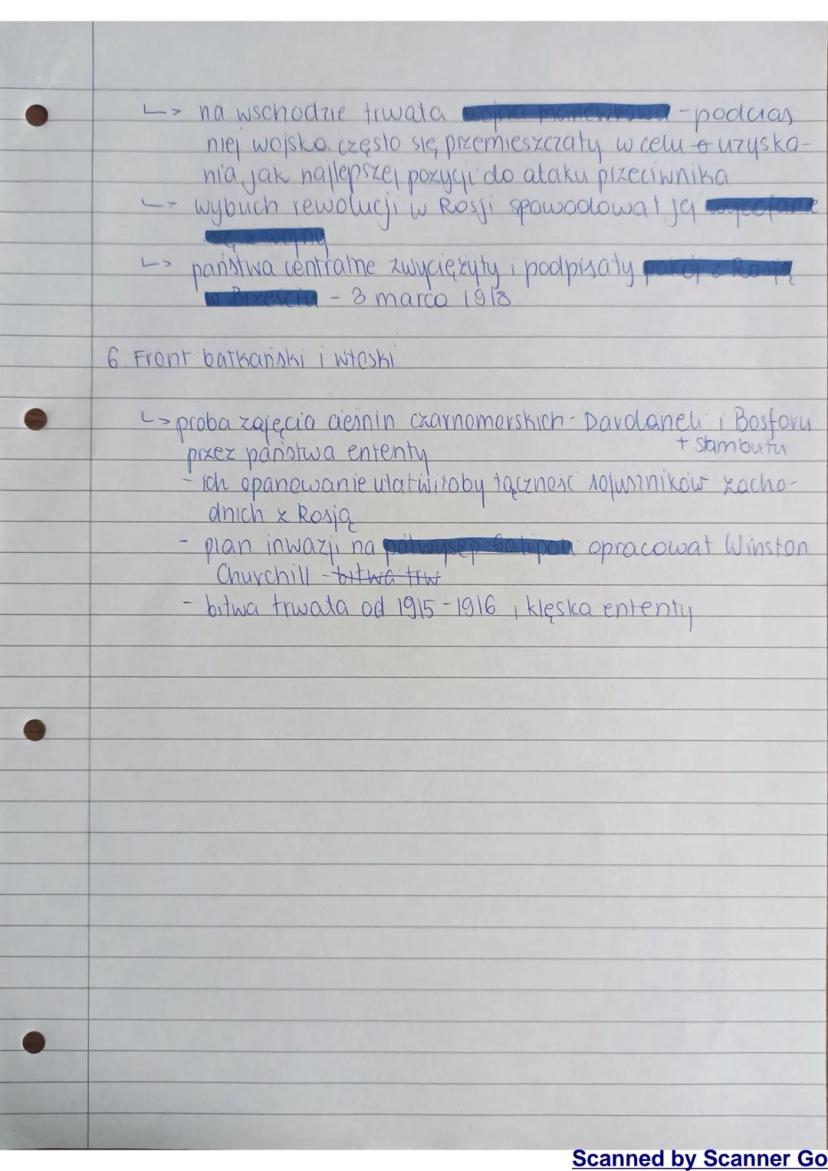 ↳ na wschodzie trwała wojna manewrowa - podczas
niej wojska często się przemieszczały w celu uzyska-
nia jak najlepszej pozycji do ataku przeciwnika
↳ wybuch rewolucji w Rosji spowodował jej wycofanie
się z wojny
↳ państwa centralne zwyciężyły i podpisały pokój z Rosją
w Brześciu - 3 marca 1918
6. Front bałkański i włoski
↳ próba zajęcia cieśnin czarnomorskich - Dardaneli i Bosforu
przez państwa ententy + Stambułu
- ich opanowanie ułatwiłoby łączność sojuszników zacho-
dnich z Rosją
- plan inwazji na półwysep Galipoli opracował Winston
Churchill - bitwa trw
- bitwa trwała od 1915 - 1916, klęska ententy
Scanned by Scanner Go